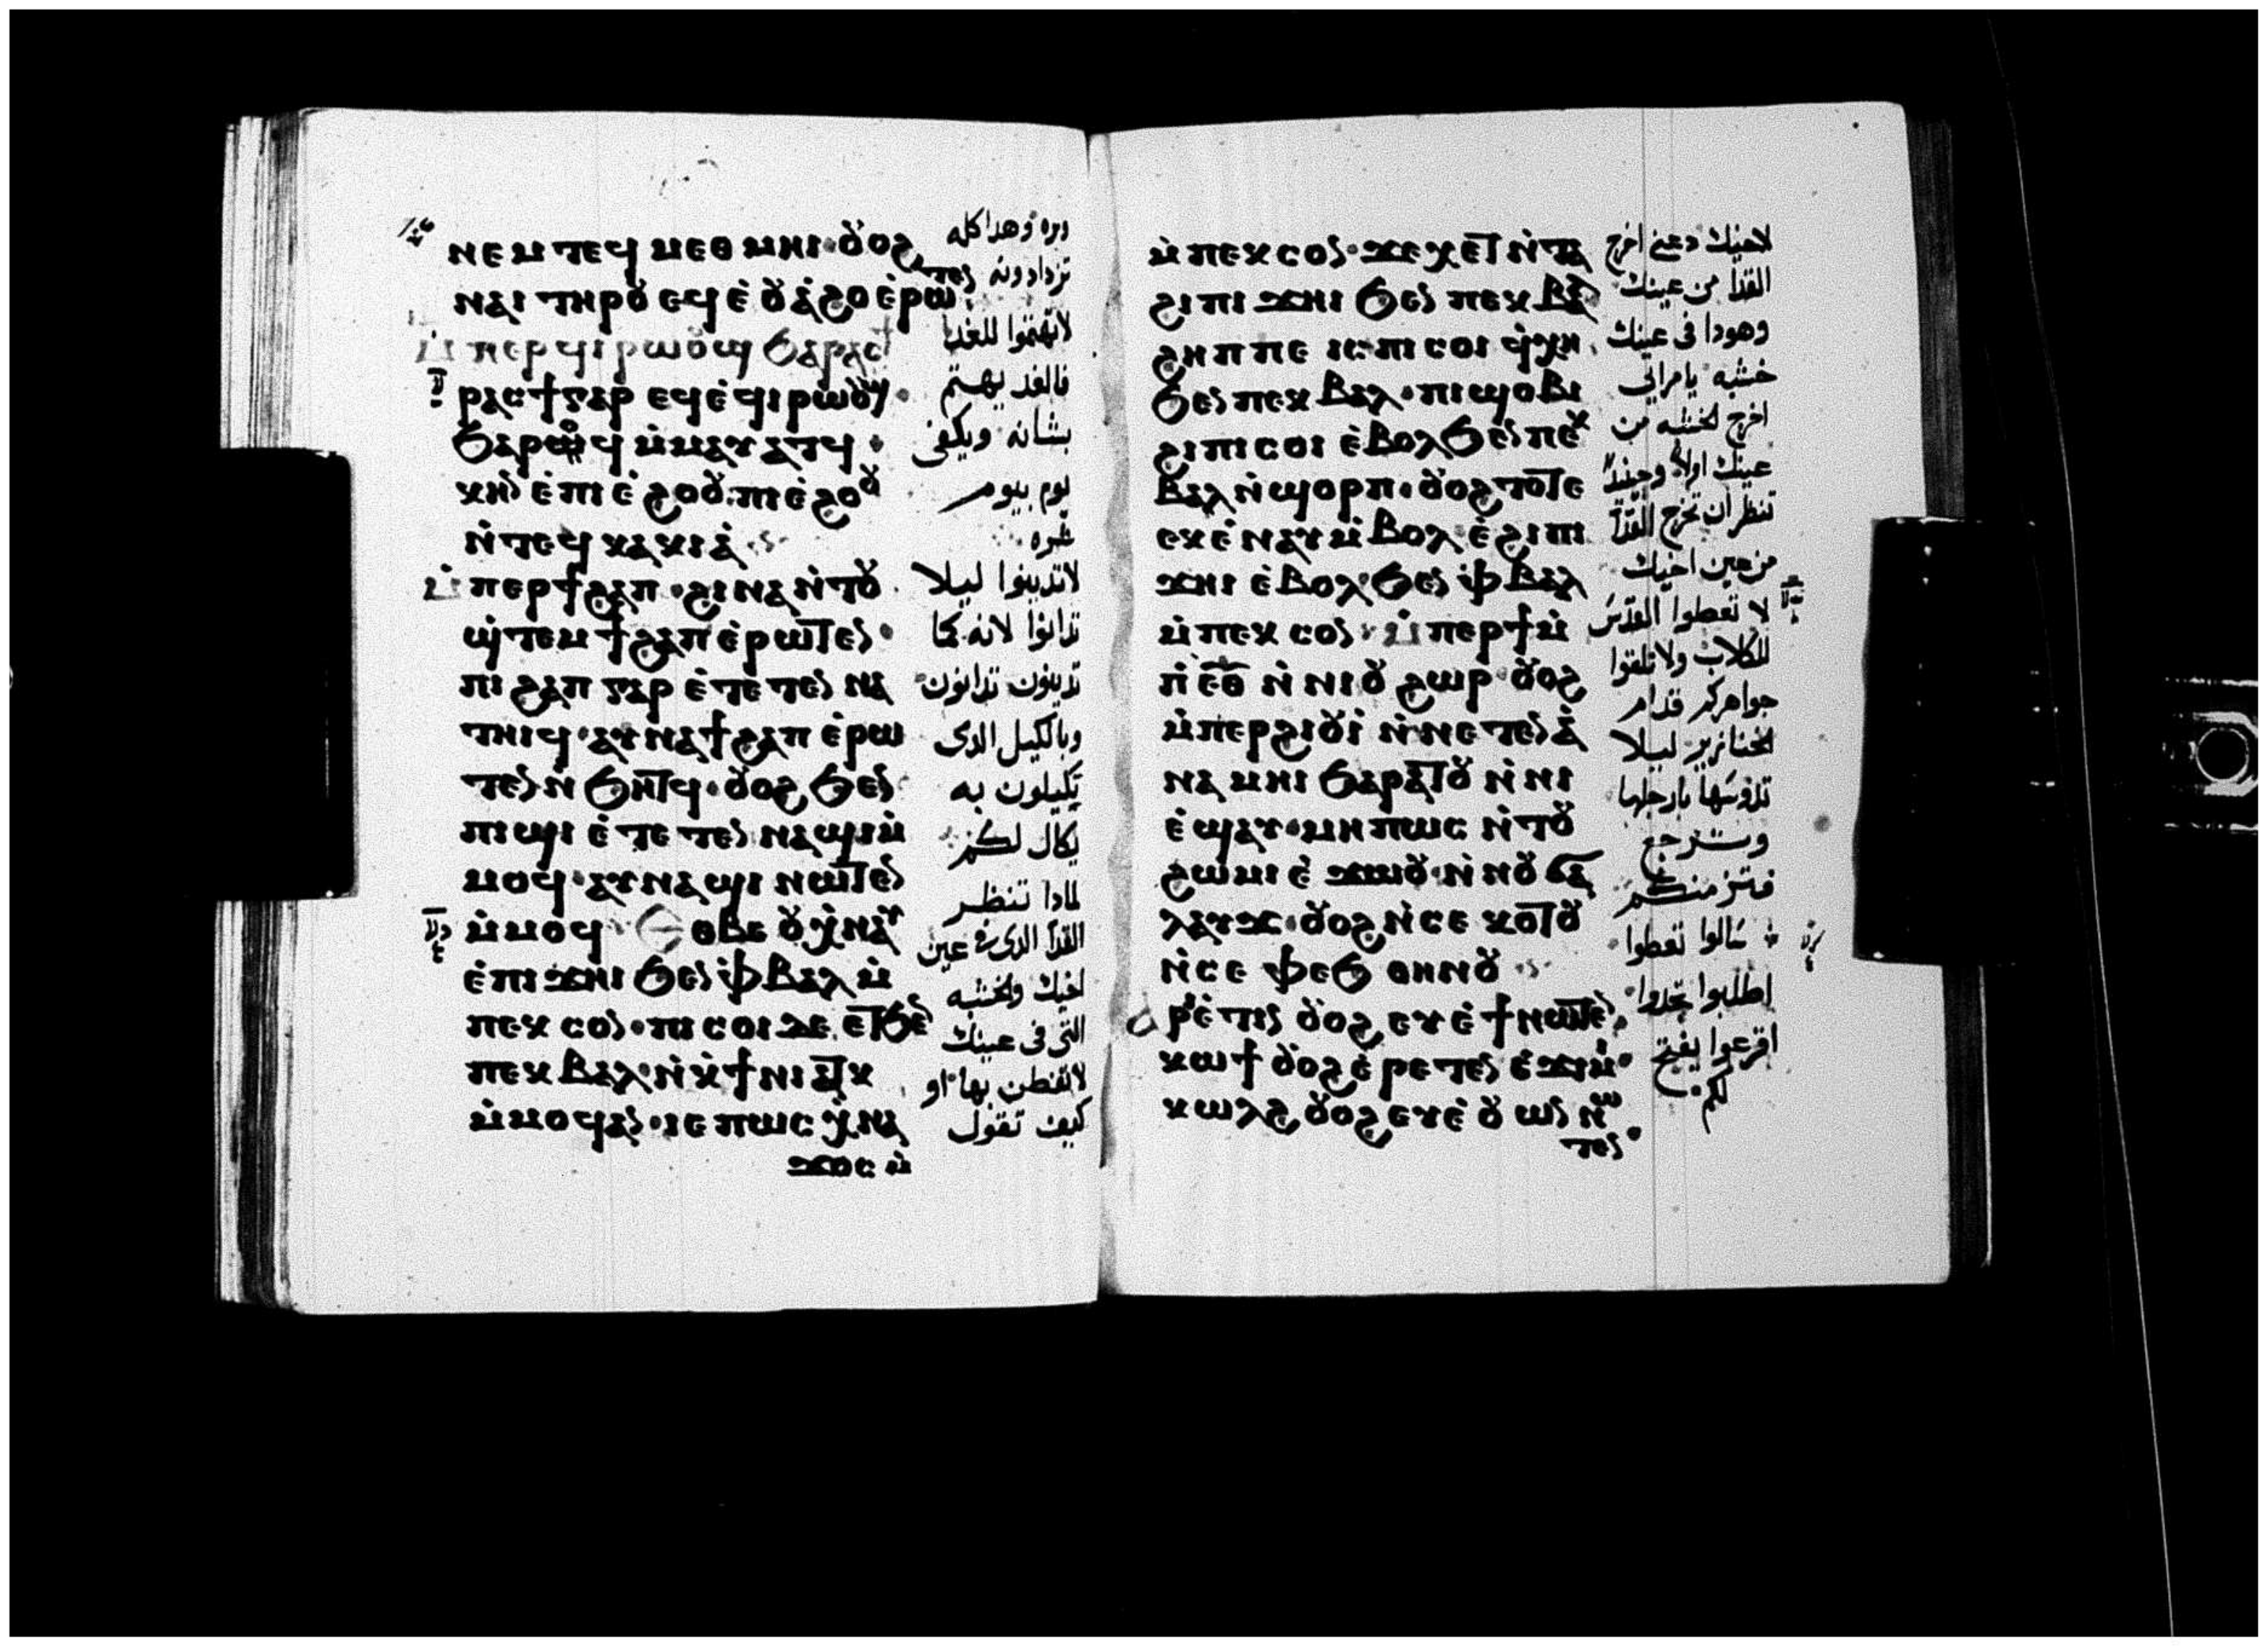 ⲛⲉⲙ ⲧⲉϥ ⲙⲉⲑⲙⲏⲓ· ⲟⲩⲟϩ
ⲛⲁⲓ ⲧⲏⲣⲟⲩ ⲉϥⲉ̀ⲟⲩⲁ̀ϩⲟ ⲉ̀ⲣⲱⲧⲉⲛ
ⲙ̀ⲡⲉⲣϥⲓⲣⲱⲟⲩϣ ϧⲁⲣⲁⲥϯ
ⲣⲁⲥϯ ⲅⲁⲣ ⲉϥⲉ̀ϥⲓⲣⲱⲟⲩϣ·
ϧⲁⲣⲱϥ ⲙ̀ⲙⲁⲩⲁⲧϥ·
ⲕⲏⲛ ⲉ̀ⲡⲓⲉ̀ϩⲟⲟⲩ· ⲡⲓⲉ̀ϩⲟⲟⲩ
ⲛ̀ⲧⲉϥ ⲕⲁⲕⲓⲁ̀
ⲙ̀ⲡⲉⲣϯϩⲁⲡ· ϩⲓⲛⲁ ⲛ̀ⲧⲟⲩ
ϣ̀ⲧⲉⲙ ϯϩⲁⲡ ⲉ̀ⲣⲱⲧⲉⲛ·
ⲡⲓ ϩⲁⲡ ⲅⲁⲣ ⲉ̀ⲧⲉⲧⲉⲛ ⲛⲁ
ⲧⲏⲓϥ· ⲁⲩⲛⲁϯϩⲁⲡ ⲉ̀ⲣⲱ
ⲧⲉⲛ ⲛ̀ϧⲏⲧϥ· ⲟⲩⲟϩ ϧⲉⲛ
ⲡⲓϣⲓ ⲉ̀ⲧⲉⲧⲉⲛ ⲛⲁϣⲓ ⲙ̀
ⲙⲟϥ· ⲁⲩⲛⲁϣⲓ ⲛⲱⲧⲉⲛ
ⲙ̀ⲙⲟϥ ⲉⲑⲃⲉ ⲟⲩ ⲭ̀ⲛⲁⲩ
ⲉ̀ⲡⲓϫⲏⲓ ϧⲉⲛ ⲫ̀ⲃⲁⲗ ⲙ̀
ⲡⲉⲕ ⲥⲟⲛ· ⲡⲓ ⲥⲟⲓ ⲇⲉ ⲉⲧϧⲉⲛ
ⲡⲉⲕ ⲃⲁⲗ· ⲛ̀ⲕ̀ϯⲛⲓⲁⲧⲕ
ⲙ̀ⲙⲟϥ ⲁⲛ· ⲓⲉ ⲡⲱⲥ ⲭ̀ⲛⲁ
ϫⲟⲥ ⲙ̀
وبره وهدا كله
تزدادونه
لا تهتموا للغد
فالغد يهتم
بشانه ويكفى
يوم بيوم
شره
لا تدينوا ليلا
تدانوا لانه كما
تدينون تدانون
وبالكيل الدى
تكيلون به
يكال لكم
لمادا تنظر
القدا الدى فى عين
اخيك والخشبه
التى فى عينك
لا تفطن بها او
كيف تقول
ⲙ̀ⲡⲉⲕ ⲥⲟⲛ· ϫⲉ ⲭⲉⲧ ⲛ̀ⲧⲁ
ϩⲓ ⲡⲓ ϫⲏⲓ ϧⲉⲛ ⲡⲉⲕ ⲃⲁⲗ
ϩⲏⲡⲡⲉ ⲓⲥ ⲡⲓ ⲥⲟⲓ ϥ̀ⲭⲏ
ϧⲉⲛ ⲡⲉⲕ ⲃⲁⲗ· ⲡⲓϣⲟⲃⲓ
ϩⲓ ⲡⲓ ⲥⲟⲓ ⲉ̀ⲃⲟⲗ ϧⲉⲛ ⲡⲉⲕ
ⲃⲁⲗ ⲛ̀ϣⲟⲣⲡ· ⲟⲩⲟϩ ⲧⲟⲧⲉ
ⲉⲕⲉ̀ⲛⲁⲩ ⲙ̀ⲃⲟⲗ ⲉ̀ϩⲓ ⲡⲓ
ϫⲏⲓ ⲉ̀ⲃⲟⲗ ϧⲉⲛ ⲫ̀ⲃⲁⲗ
ⲙ̀ⲡⲉⲕ ⲥⲟⲛ· ⲙ̀ⲡⲉⲣϯ ⲙ̀
ⲡ̀ⲉⲑ̅ ⲛ̀ⲛⲓⲟⲩϩⲱⲣ· ⲟⲩⲟϩ
ⲙ̀ⲡⲉⲣϩⲓⲟⲩⲓ̀ ⲛ̀ⲛⲉⲧⲉⲛⲁ̀
ⲛⲁⲙⲏⲓ ϧⲁⲣⲁⲧⲟⲩ ⲛ̀ⲛⲓ
ⲉ̀ϣⲁⲩ· ⲙⲏⲡⲱⲥ ⲛ̀ⲧⲟⲩ
ϩⲱⲙⲓ ⲉ̀ϫⲱⲟⲩ· ⲛ̀ⲛⲟⲩϭⲁ
ⲗⲁⲩϫ· ⲟⲩⲟϩ ⲛ̀ⲥⲉ ⲕⲟⲧⲟⲩ
ⲛ̀ⲥⲉ ⲫⲉϧ ⲑⲏⲛⲟⲩ
ⲁⲣⲓⲉ̀ⲧⲓⲛ ⲟⲩⲟϩ ⲉⲩⲉ̀ϯ ⲛⲱⲧⲉⲛ
ⲕⲱϯ ⲟⲩⲟϩ ⲉ̀ⲣⲉⲧⲉⲛ ⲉ̀ϫⲓⲙⲓ·
ⲕⲱⲗϩ ⲟⲩⲟϩ ⲉⲩⲉ̀ⲟⲩⲱⲛ ⲛⲱ
ⲧⲉⲛ·
لاخيك دعنى اخرج
القدا من عينك
وهودا فى عينك
خشبه يا مرائى
اخرج الخشبه من
عينك اولا وحينئد
تنظر ان تخرج القدا
من عين اخيك
لا تعطوا القدس
للكلاب ولا تلقوا
جواهركم قدام
الخنازير ليلا
تدوسها بارجلها
وترجع
فتمزمنكم
سالوا تعطوا
اطلبوا تجدوا
اقرعوا يفتح
لكم